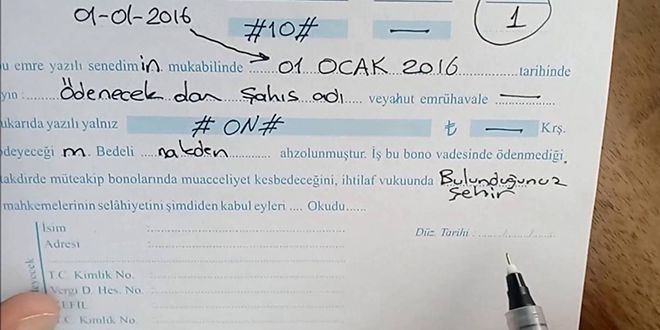 01-01-2016 #10# — 1
bu emre yazılı senedim in. mukabilinde ....01 OCAK 2016.... tarihinde
yın : Ödenecek dan Şahıs adı veyahut emrühavale —
ukarıda yazılı yalnız # ON# ₺ — Krş.
ödeyeceği m. Bedeli ....nakden.... ahzolunmuştur. İş bu bono vadesinde ödenmediği,
takdirde müteakip bonolarında muacceliyet kesbedeceğini, ihtilaf vukuunda Bulunduğunuz
Şehir
mahkemelerinin selâhiyetini şimdiden kabul eyleri .... Okudu......
İsim :
Adresi :
Düz. Tarihi ....../....../......
T.C. Kimlik No. :
Vergi D. Hes. No. :
KEFİL
T.C. Kimlik No. :